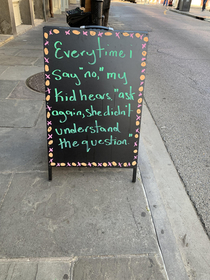 Everytime I
say "no," my
Kid hears, "ask
again, she didn't
understand
the question."